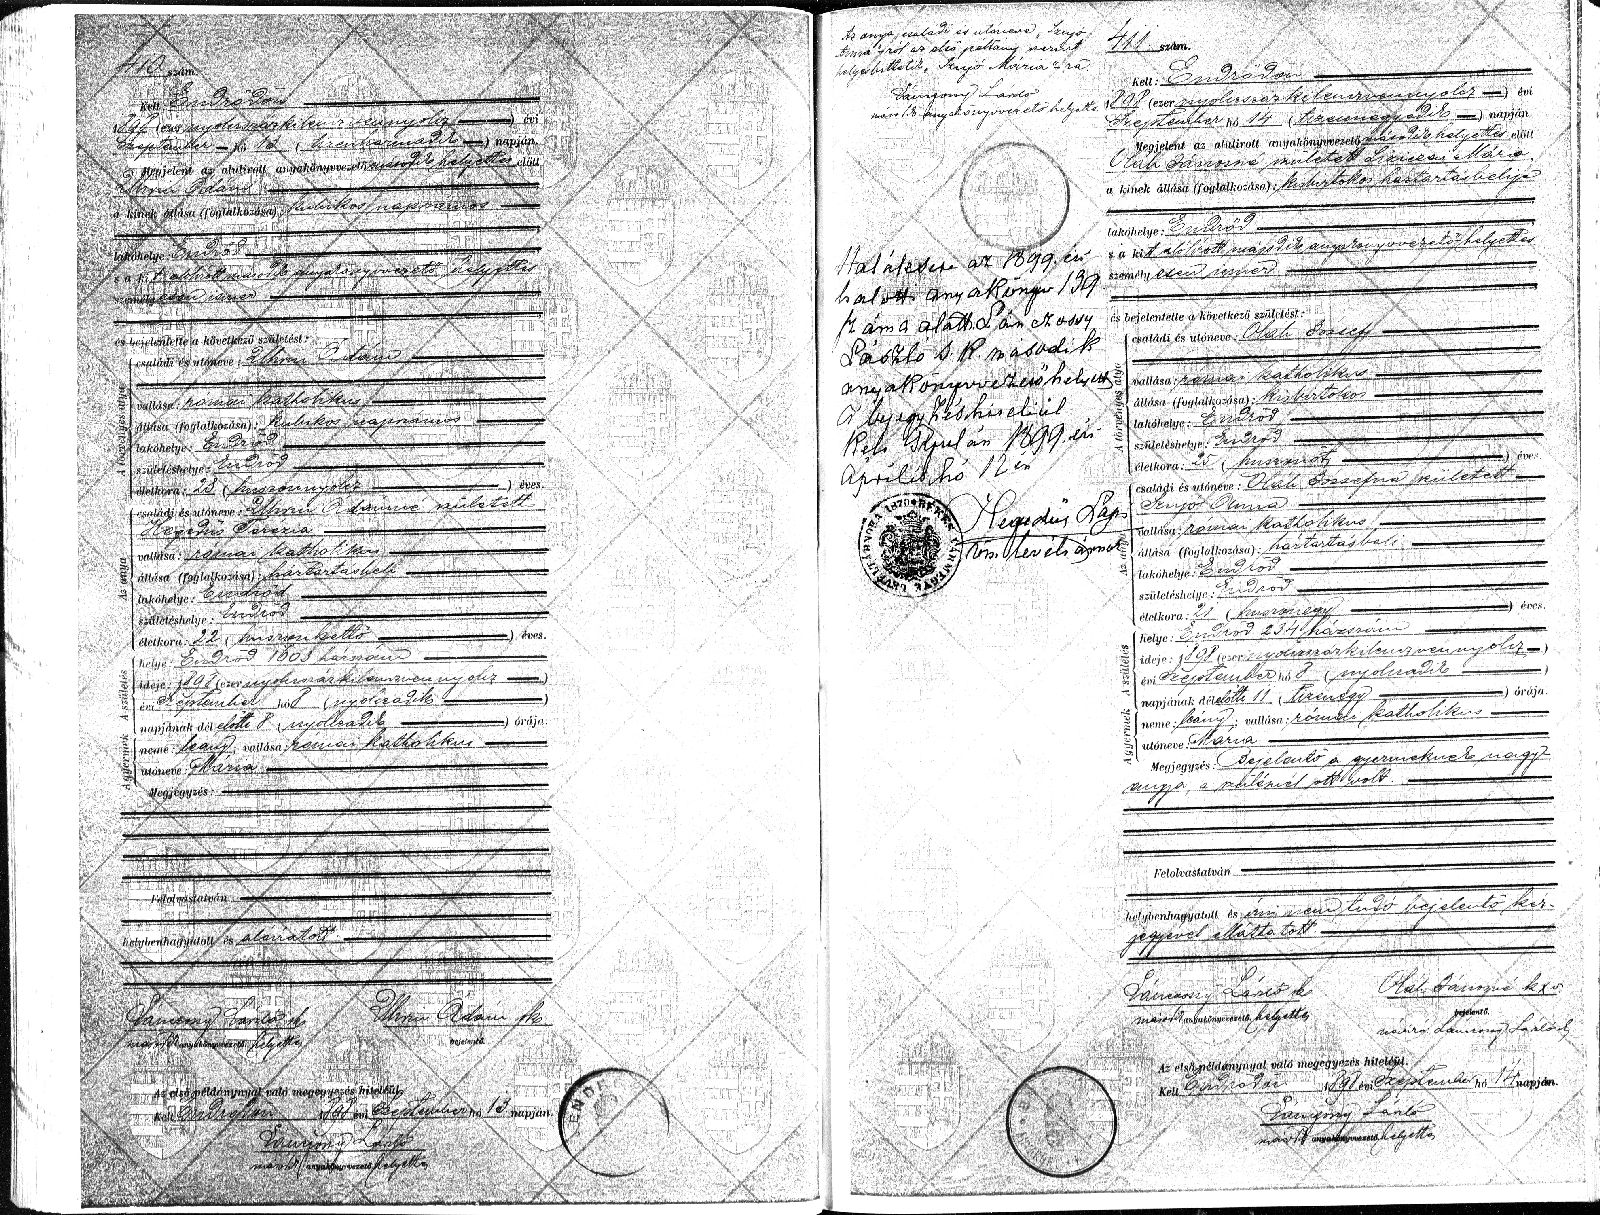 410 szám.
Kelt Endrődön
1898 (ezer nyolcszázkilenczvennyolcz) évi
Szeptember hó 13 (tizenharmadik) napján.
Megjelent az alulirott anyakönyvvezető második helyettes előtt
Uhrin Ádám
a kinek állása (foglalkozása): kubikos napszámos
lakóhelye: Endrőd
s a kit alulirott második anyakönyvvezető helyettes
személyesen ismer
és bejelentette a következő születést:
A törvényes atya
családi és utóneve: Uhrin Ádám
vallása: római katholikus
állása (foglalkozása): kubikos napszámos
lakóhelye: Endrőd
születéshelye: Endrőd
életkora: 28 (huszonnyolcz) éves.
Az anya
családi és utóneve: Uhrin Ádámné született
Hegedüs Terézia
vallása: római katholikus
állása (foglalkozása): háztartásbeli
lakóhelye: Endrőd
születéshelye: Endrőd
életkora: 22 (huszonkettő) éves.
A születés
helye: Endrőd 1603 házszám
ideje: 1898 (ezer nyolcszázkilenczvennyolcz)
évi Szeptember hó 8 (nyolczadik)
napjának dél előtti 8 (nyolczadik) órája.
A gyermek
neme: leány; vallása: római katholikus
utóneve: Mária
Megjegyzés:
Felolvastatván
helybenhagyatott és aláiratott
Lánczosy László sk
második anyakönyvvezető helyettes
Uhrin Ádám sk
bejelentő.
Az első példánynyal való megegyezés hiteléül.
Kelt Endrődön 1898 évi Szeptember hó 13 napján.
Lánczosy László
második anyakönyvvezető helyettes
Az anya családi és utóneve „Szujó
Anna"-ról az első példány szerint
helyesbittetik „Szujó Mária"-ra.
Lánczosy László
másod anyakönyvvezető helyettes
Halálesete az 1899. évi
halotti anyakönyv 139
száma alatt Lánczossy
László s. k. második
anyakönyvvezető helyettes
A bejegyzés hiteléül
Kelt Gyulán 1899. évi
Április hó 12 én
Hegedüs Lajos
vm. levéltárnok
411 szám.
Kelt: Endrődön
1898 (ezer nyolcszázkilenczvennyolcz) évi
Szeptember hó 14 (tizennegyedik) napján.
Megjelent az alulirott anyakönyvvezető második helyettes előtt
Oláh Jánosné született Mária,
a kinek állása (foglalkozása): kisbirtokos háztartásbelije
lakóhelye: Endrőd
s a kit alulirott második anyakönyvvezető helyettes
személyesen ismer
és bejelentette a következő születést:
A törvényes atya
családi és utóneve: Oláh József
vallása: római katholikus
állása (foglalkozása): kisbirtokos
lakóhelye: Endrőd
születéshelye: Endrőd
életkora: 25 (huszonöt) éves.
Az anya
családi és utóneve: Oláh Józsefné született
Szujó Anna
vallása: római katholikus
állása (foglalkozása): háztartásbeli
lakóhelye: Endrőd
születéshelye: Endrőd
életkora: 21 (huszonegy) éves.
A születés
helye: Endrőd 234 házszám
ideje: 1898 (ezer nyolcszázkilenczvennyolcz)
évi Szeptember hó 8 (nyolczadik)
napjának dél előtti 11 (tizenegy) órája.
A gyermek
neme: leány; vallása: római katholikus
utóneve: Mária
Megjegyzés: Bejelentő a gyermeknek nagy-
anyja, a szülésnél ott volt.
Felolvastatván
helybenhagyatott és irni nem tudó bejelentő kéz-
jegyével elláttatott
Lánczosy László sk
második anyakönyvvezető helyettes
Oláh Jánosné kéz x vo.
bejelentő.
névíró Lánczosy László sk
Az első példánynyal való megegyezés hiteléül.
Kelt Endrődön 1898 évi Szeptember hó 14 napján.
Lánczosy László
második anyakönyvvezető helyettes